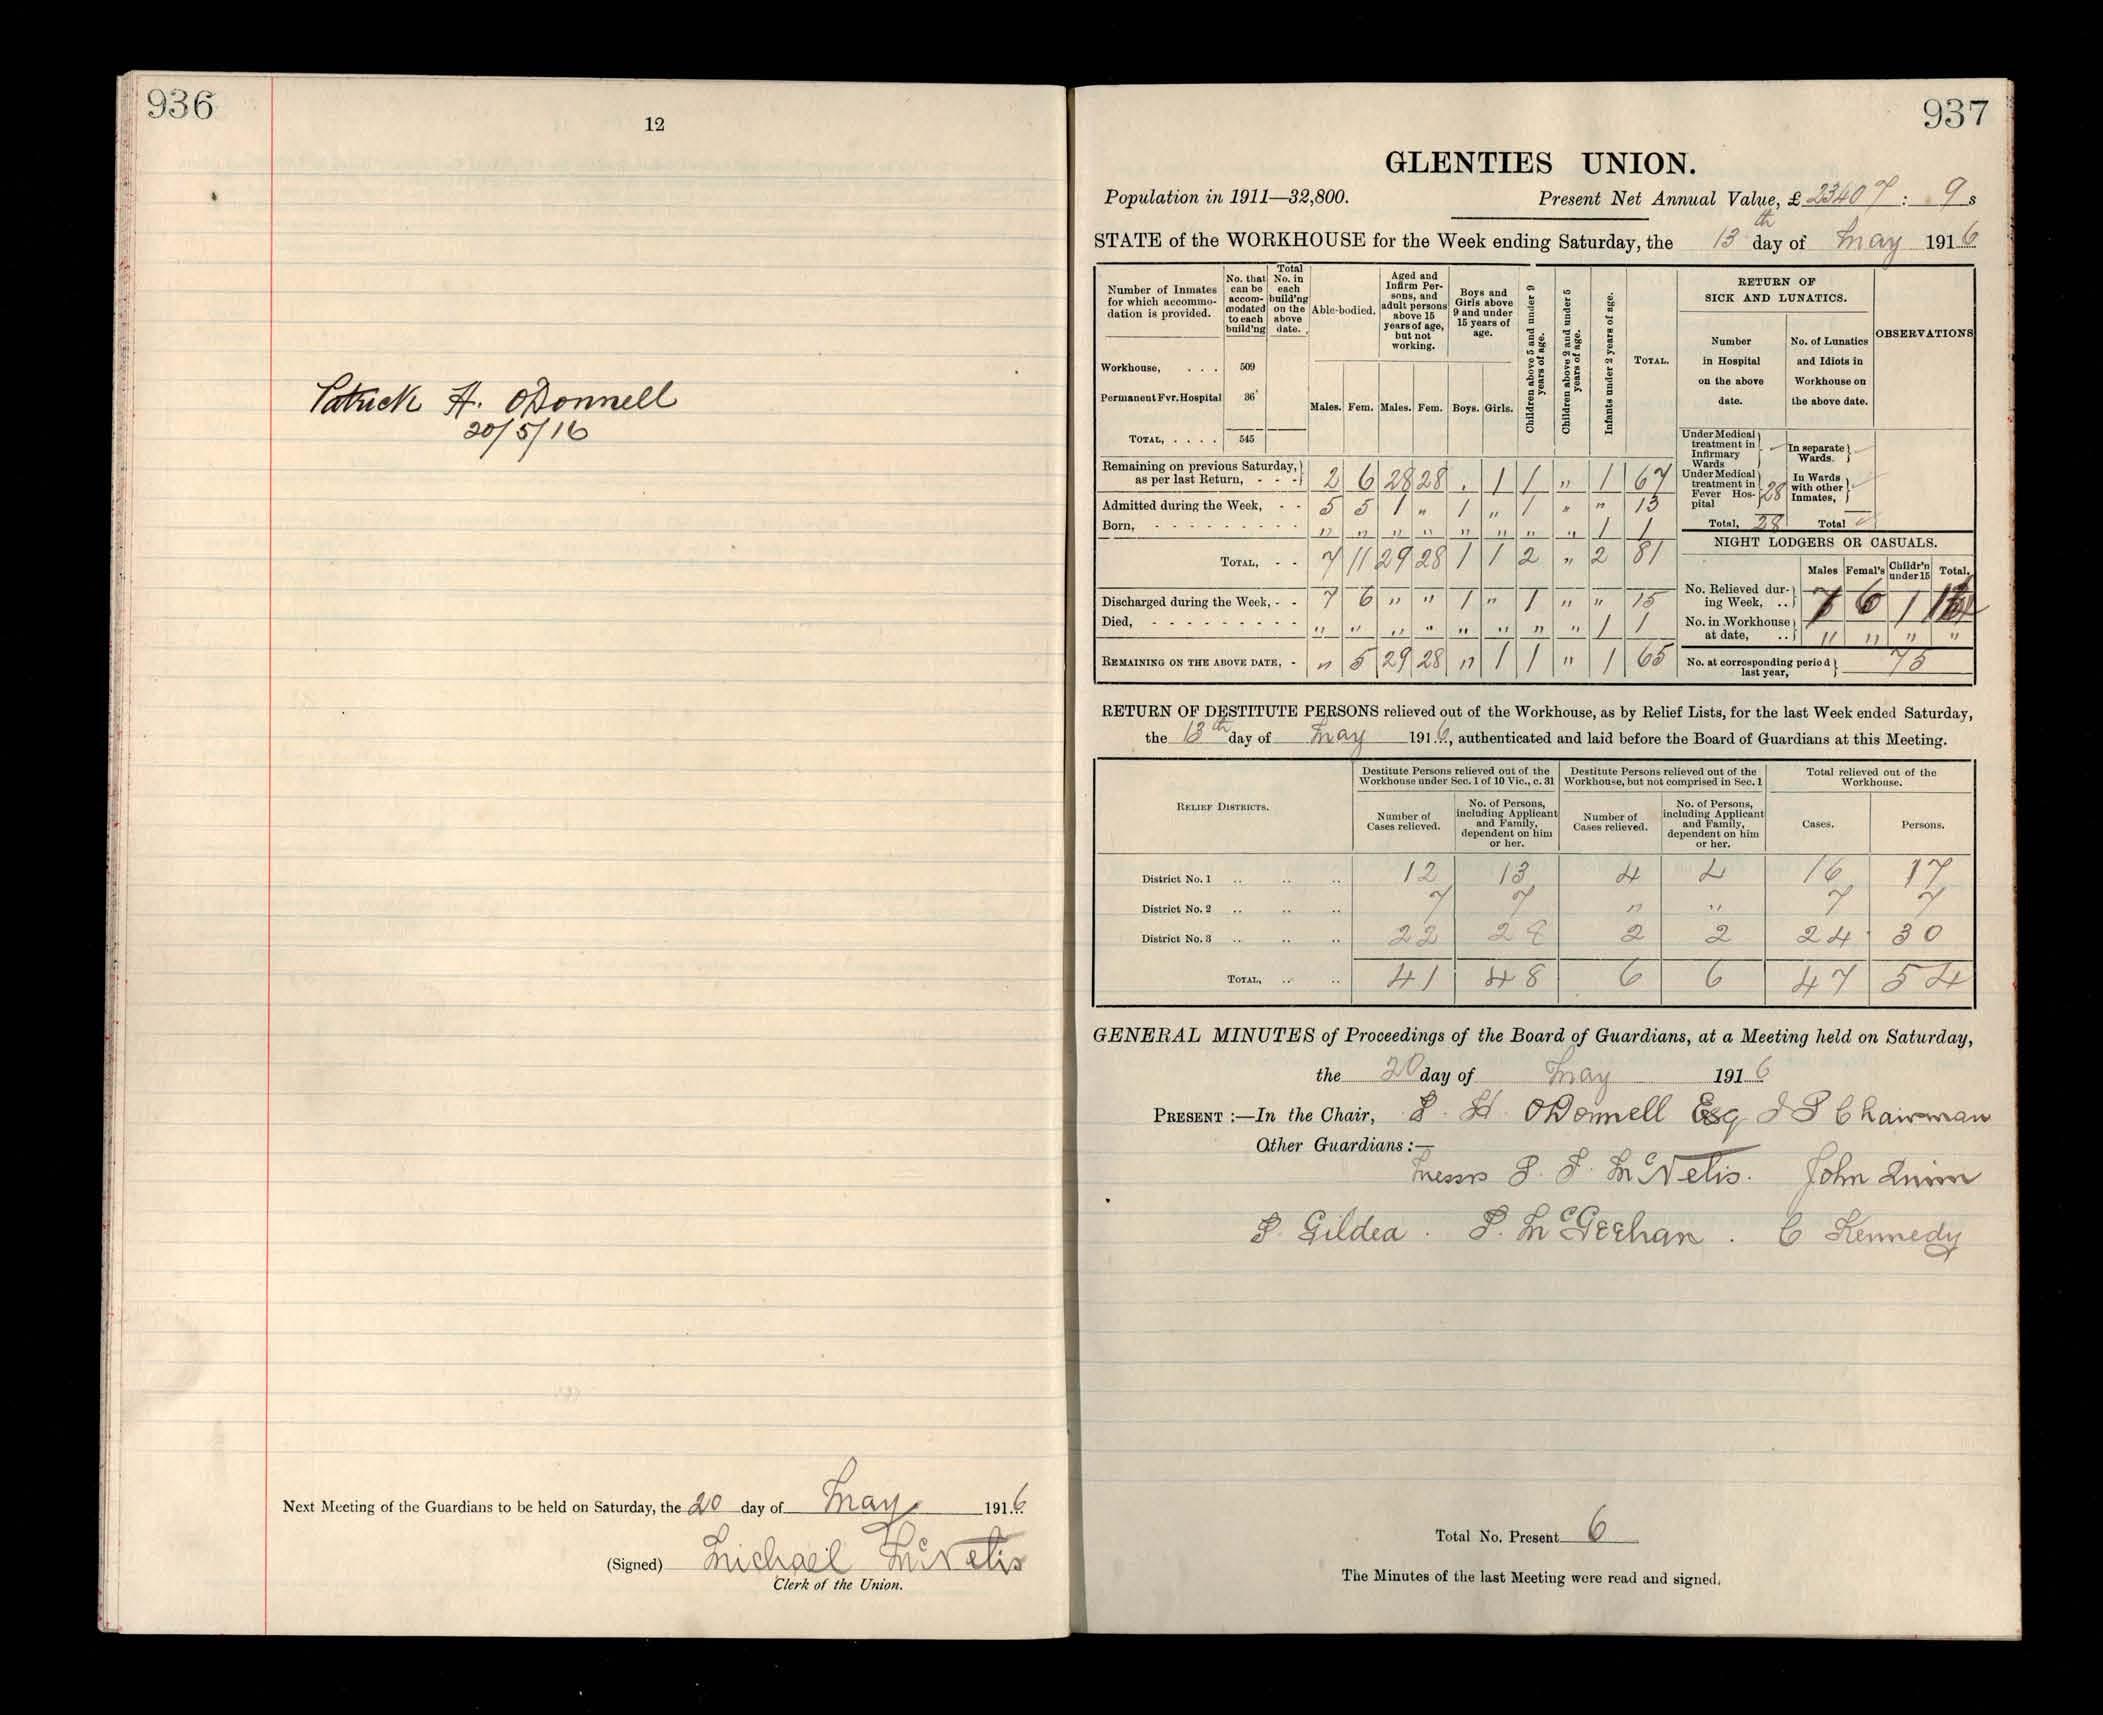 936
12
Patrick H. O'Donnell
20/5/16
Next Meeting of the Guardians to be held on Saturday, the 20 day of May 1916.
(Signed) Michael McNelis
Clerk of the Union.
937
GLENTIES UNION.
Population in 1911—32,800. Present Net Annual Value, £23407 : 9 s
STATE of the WORKHOUSE for the Week ending Saturday, the 13th day of May 1916
Number of Inmates for which accommodation is provided.
No. that can be accommodated to each build'ng
Total No. in each build'ng on the above date.
Able-bodied.
Aged and Infirm Persons, and adult persons above 15 years of age, but not working.
Boys and Girls above 9 and under 15 years of age.
Children above 5 and under 9 years of age.
Children above 2 and under 5 years of age.
Infants under 2 years of age.
TOTAL.
RETURN OF SICK AND LUNATICS.
Number in Hospital on the above date.
No. of Lunatics and Idiots in Workhouse on the above date.
OBSERVATIONS
Workhouse, . . . 509
Permanent Fvr. Hospital 36
TOTAL, . . . . 545
Males. Fem. Males. Fem. Boys. Girls.
Remaining on previous Saturday, as per last Return, - - - 2 6 28 28 . 1 1 " 1 67
Admitted during the Week, - - 5 5 1 " 1 " 1 " " 13
Born, - - - - - - - - - " " " " " " " " 1 1
TOTAL, - - 7 11 29 28 1 1 2 " 2 81
Discharged during the Week, - - 7 6 " " 1 " 1 " " 15
Died, - - - - - - - - - " " " " " " " " 1 1
REMAINING ON THE ABOVE DATE, - " 5 29 28 " 1 1 " 1 65
Under Medical treatment in Infirmary Wards
Under Medical treatment in Fever Hospital 28
Total, 28
In separate Wards.
In Wards with other Inmates,
Total
NIGHT LODGERS OR CASUALS.
Males Femal's Childr'n under 15 Total.
No. Relieved during Week, .. 7 6 1 14
No. in Workhouse at date, .. " " " "
No. at corresponding period last year, 75
RETURN OF DESTITUTE PERSONS relieved out of the Workhouse, as by Relief Lists, for the last Week ended Saturday,
the 13th day of May 1916, authenticated and laid before the Board of Guardians at this Meeting.
RELIEF DISTRICTS.
Destitute Persons relieved out of the Workhouse under Sec. 1 of 10 Vic., c. 31
Destitute Persons relieved out of the Workhouse, but not comprised in Sec. 1
Total relieved out of the Workhouse.
Number of Cases relieved.
No. of Persons, including Applicant and Family, dependent on him or her.
Number of Cases relieved.
No. of Persons, including Applicant and Family, dependent on him or her.
Cases.
Persons.
District No. 1 .. .. .. 12 13 4 4 16 17
District No. 2 .. .. .. 7 7 " " 7 7
District No. 3 .. .. .. 22 28 2 2 24 30
TOTAL, .. .. 41 48 6 6 47 54
GENERAL MINUTES of Proceedings of the Board of Guardians, at a Meeting held on Saturday,
the 20 day of May 1916
PRESENT :—In the Chair, P. H. O'Donnell Esq J P Chairman
Other Guardians :—
Messrs P. F. McNelis. John Quinn
P. Gildea . P. McGeehan . C Kennedy
Total No. Present 6
The Minutes of the last Meeting were read and signed.